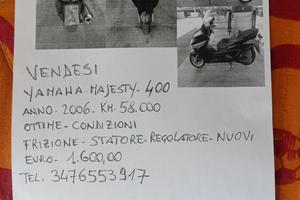 VENDESI
YAMAHA-MAJESTY-400
ANNO-2006. KM. 58.000
OTTIME-CONDIZIONI
FRIZIONE-STATORE-REGOLATORE-NUOVI
EURO-1.600,00
TEL. 3476553917